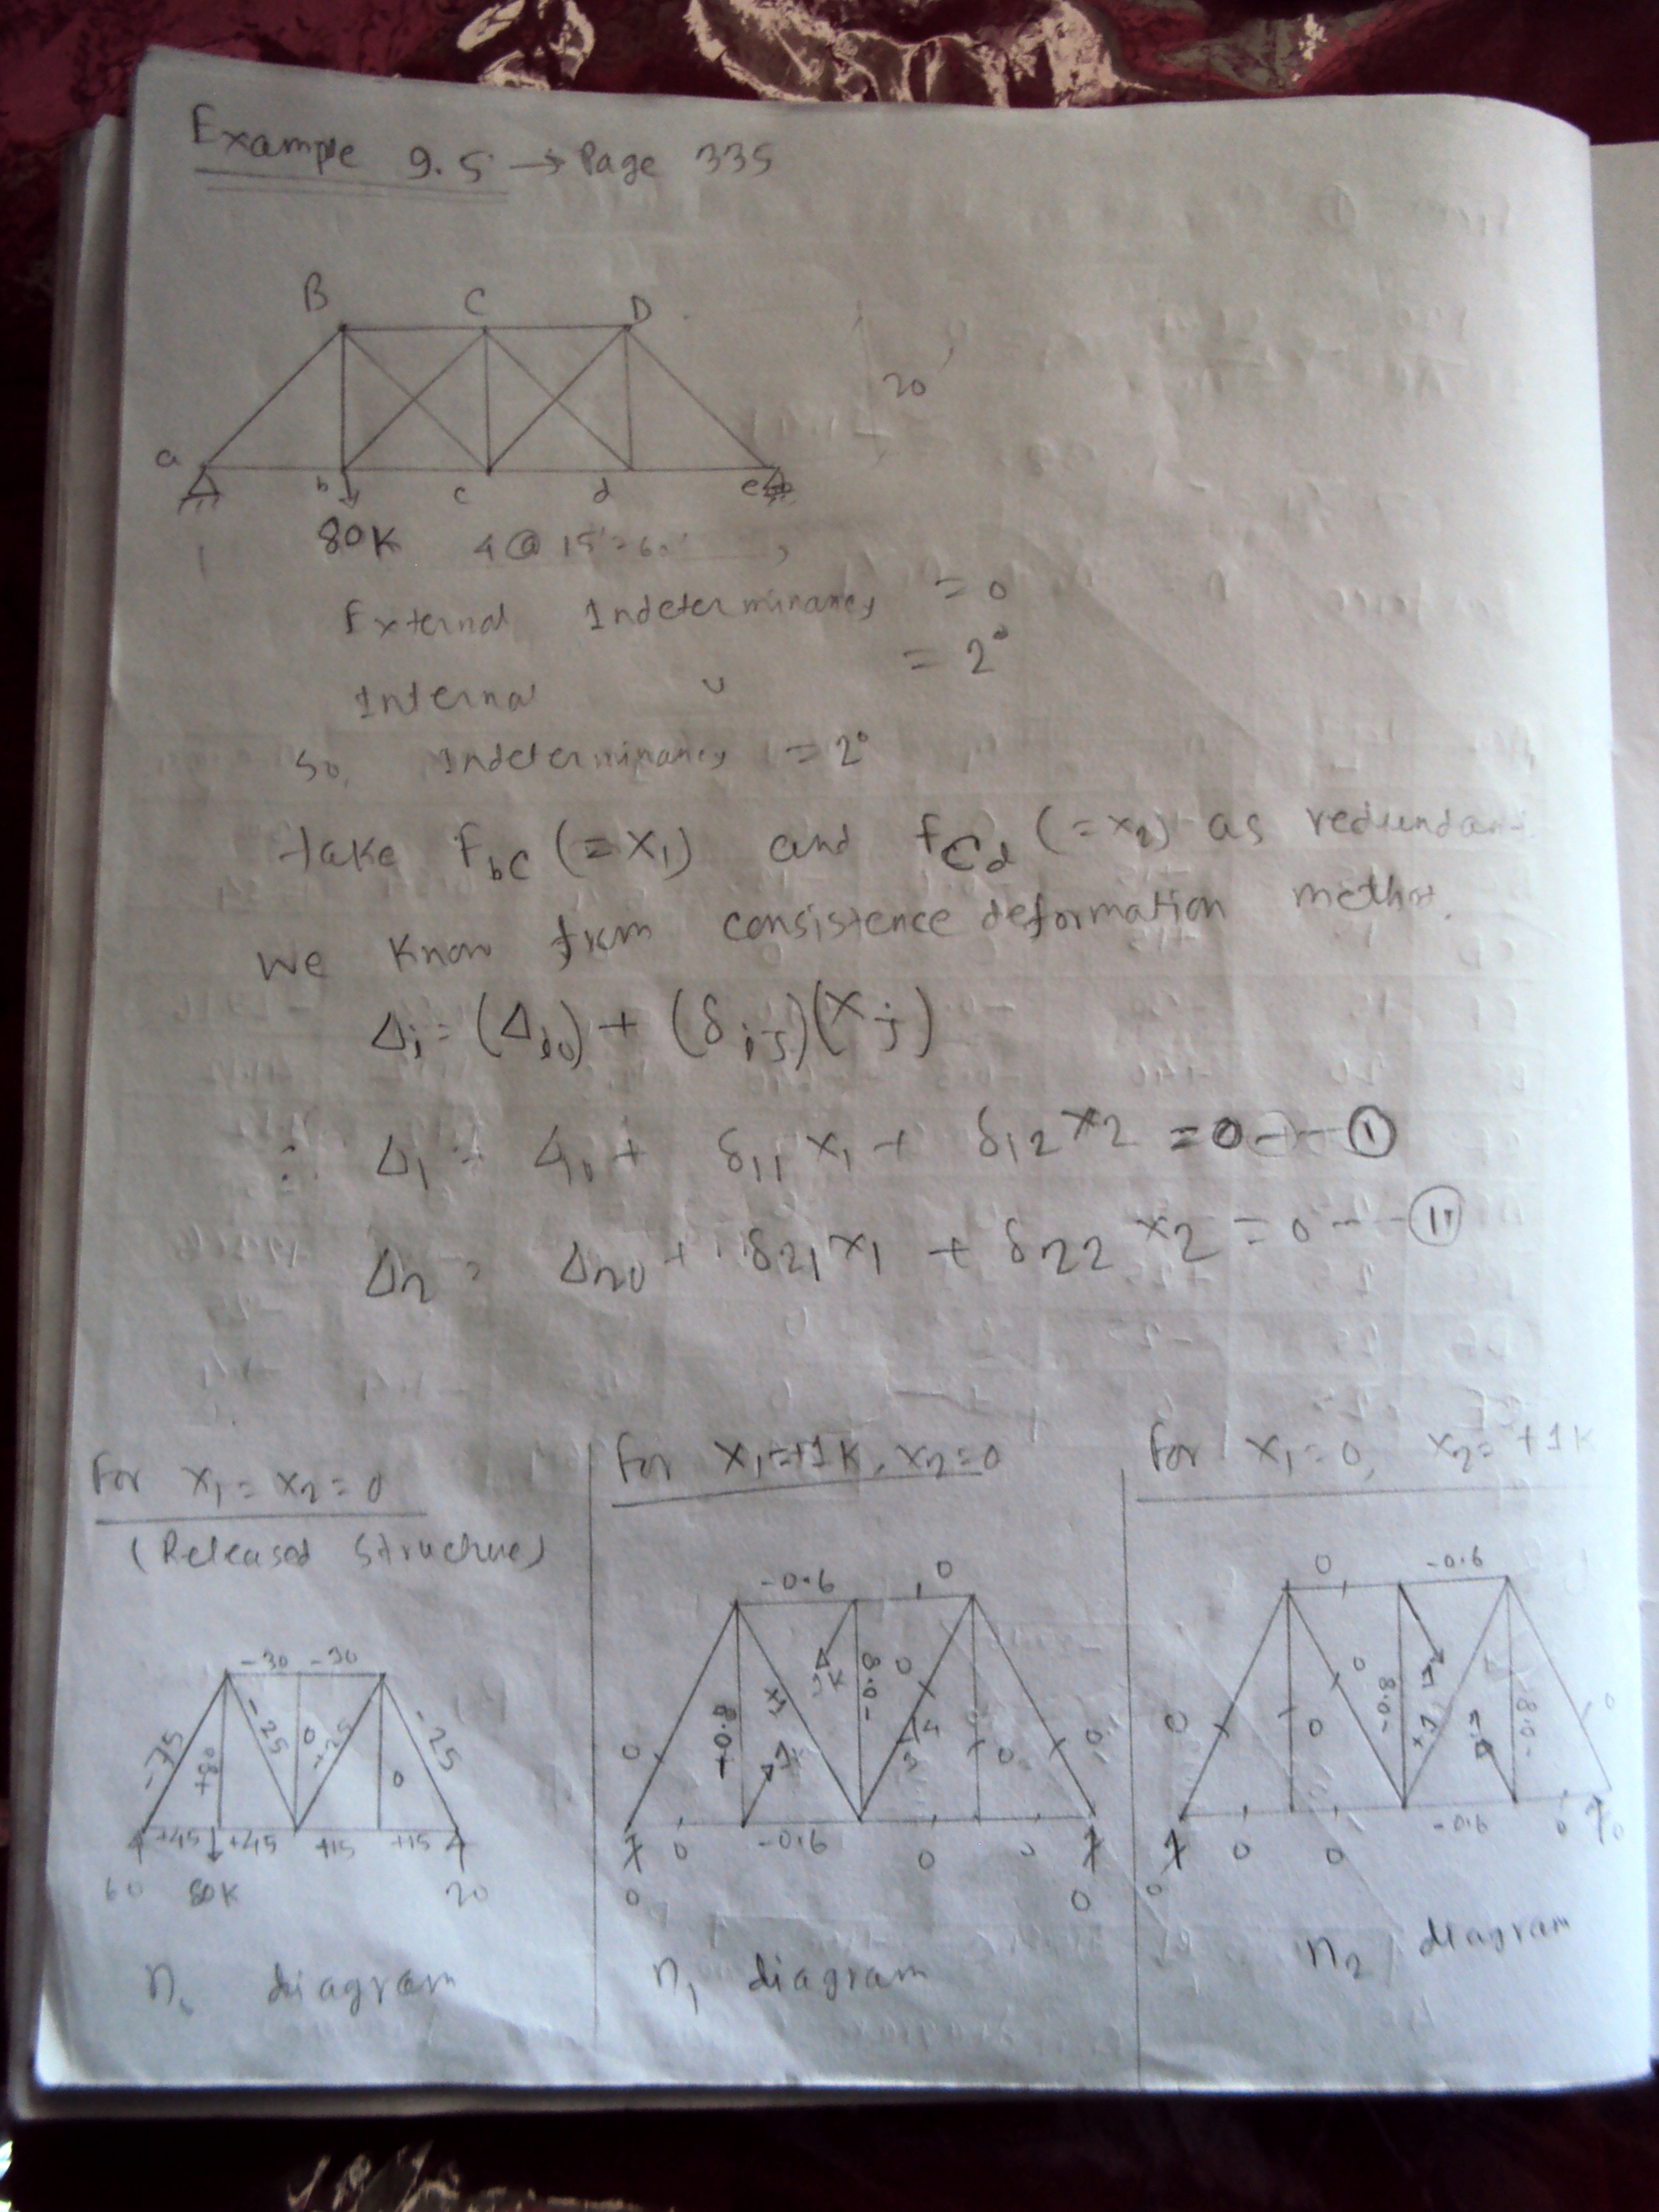 Example 9.5 → Page 335
B C D
20'
a b c d e
80K 4@15'=60'
External Indeterminancy = 0
Internal " = 2°
So, Indeterminancy = 2°
take FbC (=X1) and FCd (=X2) as redundant
We know from consistence deformation method.
Δi = (Δi0) + (δij)(Xj)
∴ Δ1 = Δ10 + δ11 X1 + δ12 X2 = 0 --- (I)
Δ2 = Δ20 + δ21 X1 + δ22 X2 = 0 --- (II)
For X1 = X2 = 0
(Released Structure)
-30 -30
-75 +80 -25 0 +25 0 -25
+45 +45 +15 +15
60 80K 20
n0 diagram
For X1=+1K, X2=0
-0.6 0
0 -0.8 +1 1K -0.8 0 4 3 0 0
0 -0.6 0 0
0 0
n1 diagram
For X1=0, X2=+1K
0 -0.6
0 0 0 -0.8 +1 -0.8 0
0 0 -0.6 0
0 0
n2 diagram